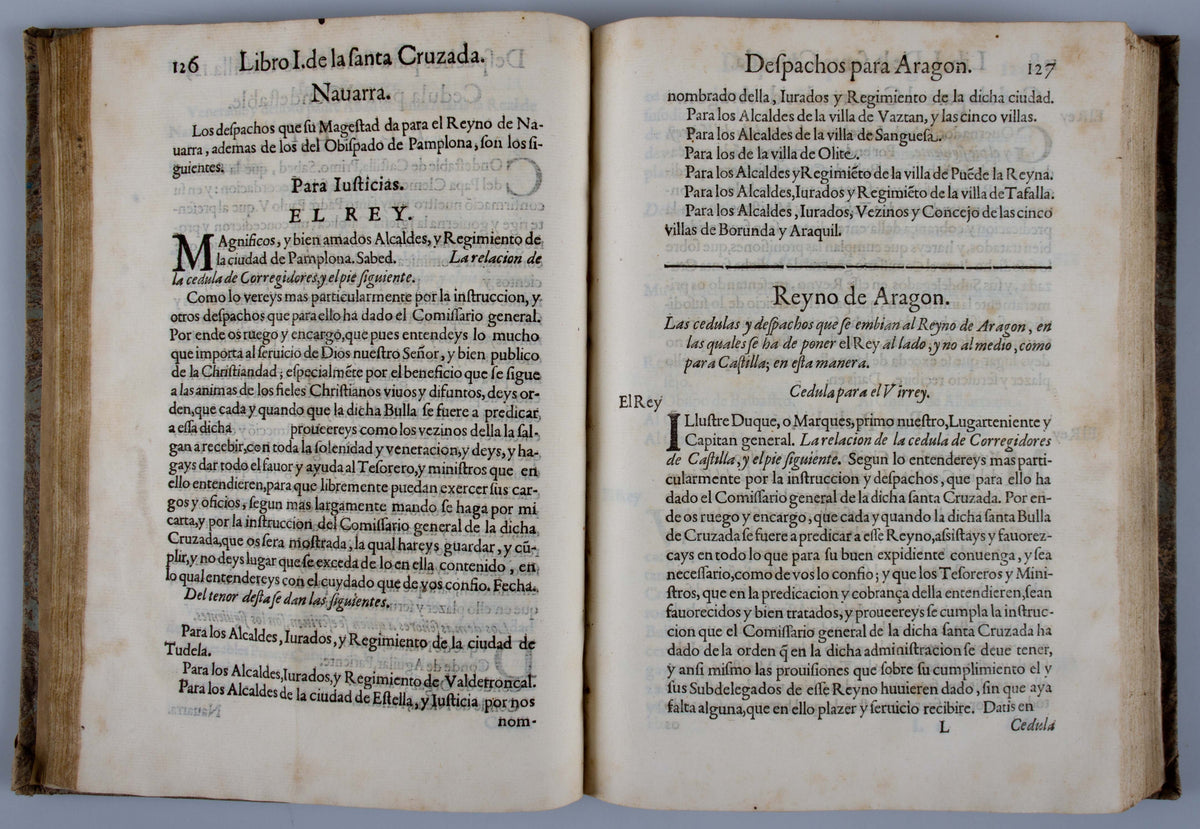 126 Libro I. de la santa Cruzada.
Nauarra.
Los despachos que su Magestad da para el Reyno de Na-
uarra, ademas de los del Obispado de Pamplona, son los si-
guientes.
Para Iusticias.
EL REY.
MAgnificos, y bien amados Alcaldes, y Regimiento de
la ciudad de Pamplona. Sabed. La relacion de
la cedula de Corregidores, y el pie siguiente.
Como lo vereys mas particularmente por la instruccion, y
otros despachos que para ello ha dado el Comissario general.
Por ende os ruego y encargo, que pues entendeys lo mucho
que importa al seruicio de Dios nuestro Señor, y bien publico
de la Christiandad; especialmẽte por el beneficio que se sigue
a las animas de los fieles Christianos viuos y difuntos, deys or-
den, que cada y quando que la dicha Bulla se fuere a predicar,
a essa dicha proueereys como los vezinos della la sal-
gan a recebir, con toda la solenidad y veneracion, y deys, y ha-
gays dar todo el fauor y ayuda al Tesorero, y ministros que en
ello entendieren, para que libremente puedan exercer sus car-
gos y oficios, segun mas largamente mando se haga por mi
carta, y por la instruccion del Comissario general de la dicha
Cruzada, que os sera mostrada, la qual hareys guardar, y cũ-
plir, y no deys lugar que se exceda de lo en ella contenido, en
lo qual entendereys con el cuydado que de vos confio. Fecha.
Del tenor desta se dan las siguientes.
Para los Alcaldes, Iurados, y Regimiento de la ciudad de
Tudela.
Para los Alcaldes, Iurados, y Regimiento de Valderroncal.
Para los Alcaldes de la ciudad de Estella, y Iusticia por nos
nom-
Despachos para Aragon. 127
nombrado della, Iurados y Regimiento de la dicha ciudad.
Para los Alcaldes de la villa de Vaztan, y las cinco villas.
Para los Alcaldes de la villa de Sanguesa.
Para los de la villa de Olite.
Para los Alcaldes y Regimiẽto de la villa de Puẽde la Reyna.
Para los Alcaldes, Iurados y Regimiẽto de la villa de Tafalla.
Para los Alcaldes, Iurados, Vezinos y Concejo de las cinco
Villas de Borunda y Araquil.
Reyno de Aragon.
Las cedulas y despachos que se embian al Reyno de Aragon, en
las quales se ha de poner el Rey al lado, y no al medio, como
para Castilla; en esta manera.
Cedula para el Virrey.
El Rey
ILlustre Duque, o Marques, primo nuestro, Lugarteniente y
Capitan general. La relacion de la cedula de Corregidores
de Castilla, y el pie siguiente. Segun lo entendereys mas parti-
cularmente por la instruccion y despachos, que para ello ha
dado el Comissario general de la dicha santa Cruzada. Por en-
de os ruego y encargo, que cada y quando la dicha santa Bulla
de Cruzada se fuere a predicar a esse Reyno, assistays y fauorez-
cays en todo lo que para su buen expidiente conuenga, y sea
necessario, como de vos lo confio; y que los Tesoreros y Mini-
stros, que en la predicacion y cobrança della entendieren, sean
fauorecidos y bien tratados, y proueereys se cumpla la instruc-
cion que el Comissario general de la dicha santa Cruzada ha
dado de la orden q̃ en la dicha administracion se deue tener,
y ansi mismo las prouisiones que sobre su cumplimiento el y
sus Subdelegados de esse Reyno huuieren dado, sin que aya
falta alguna, que en ello plazer y seruicio recibire. Datis en
L Cedula